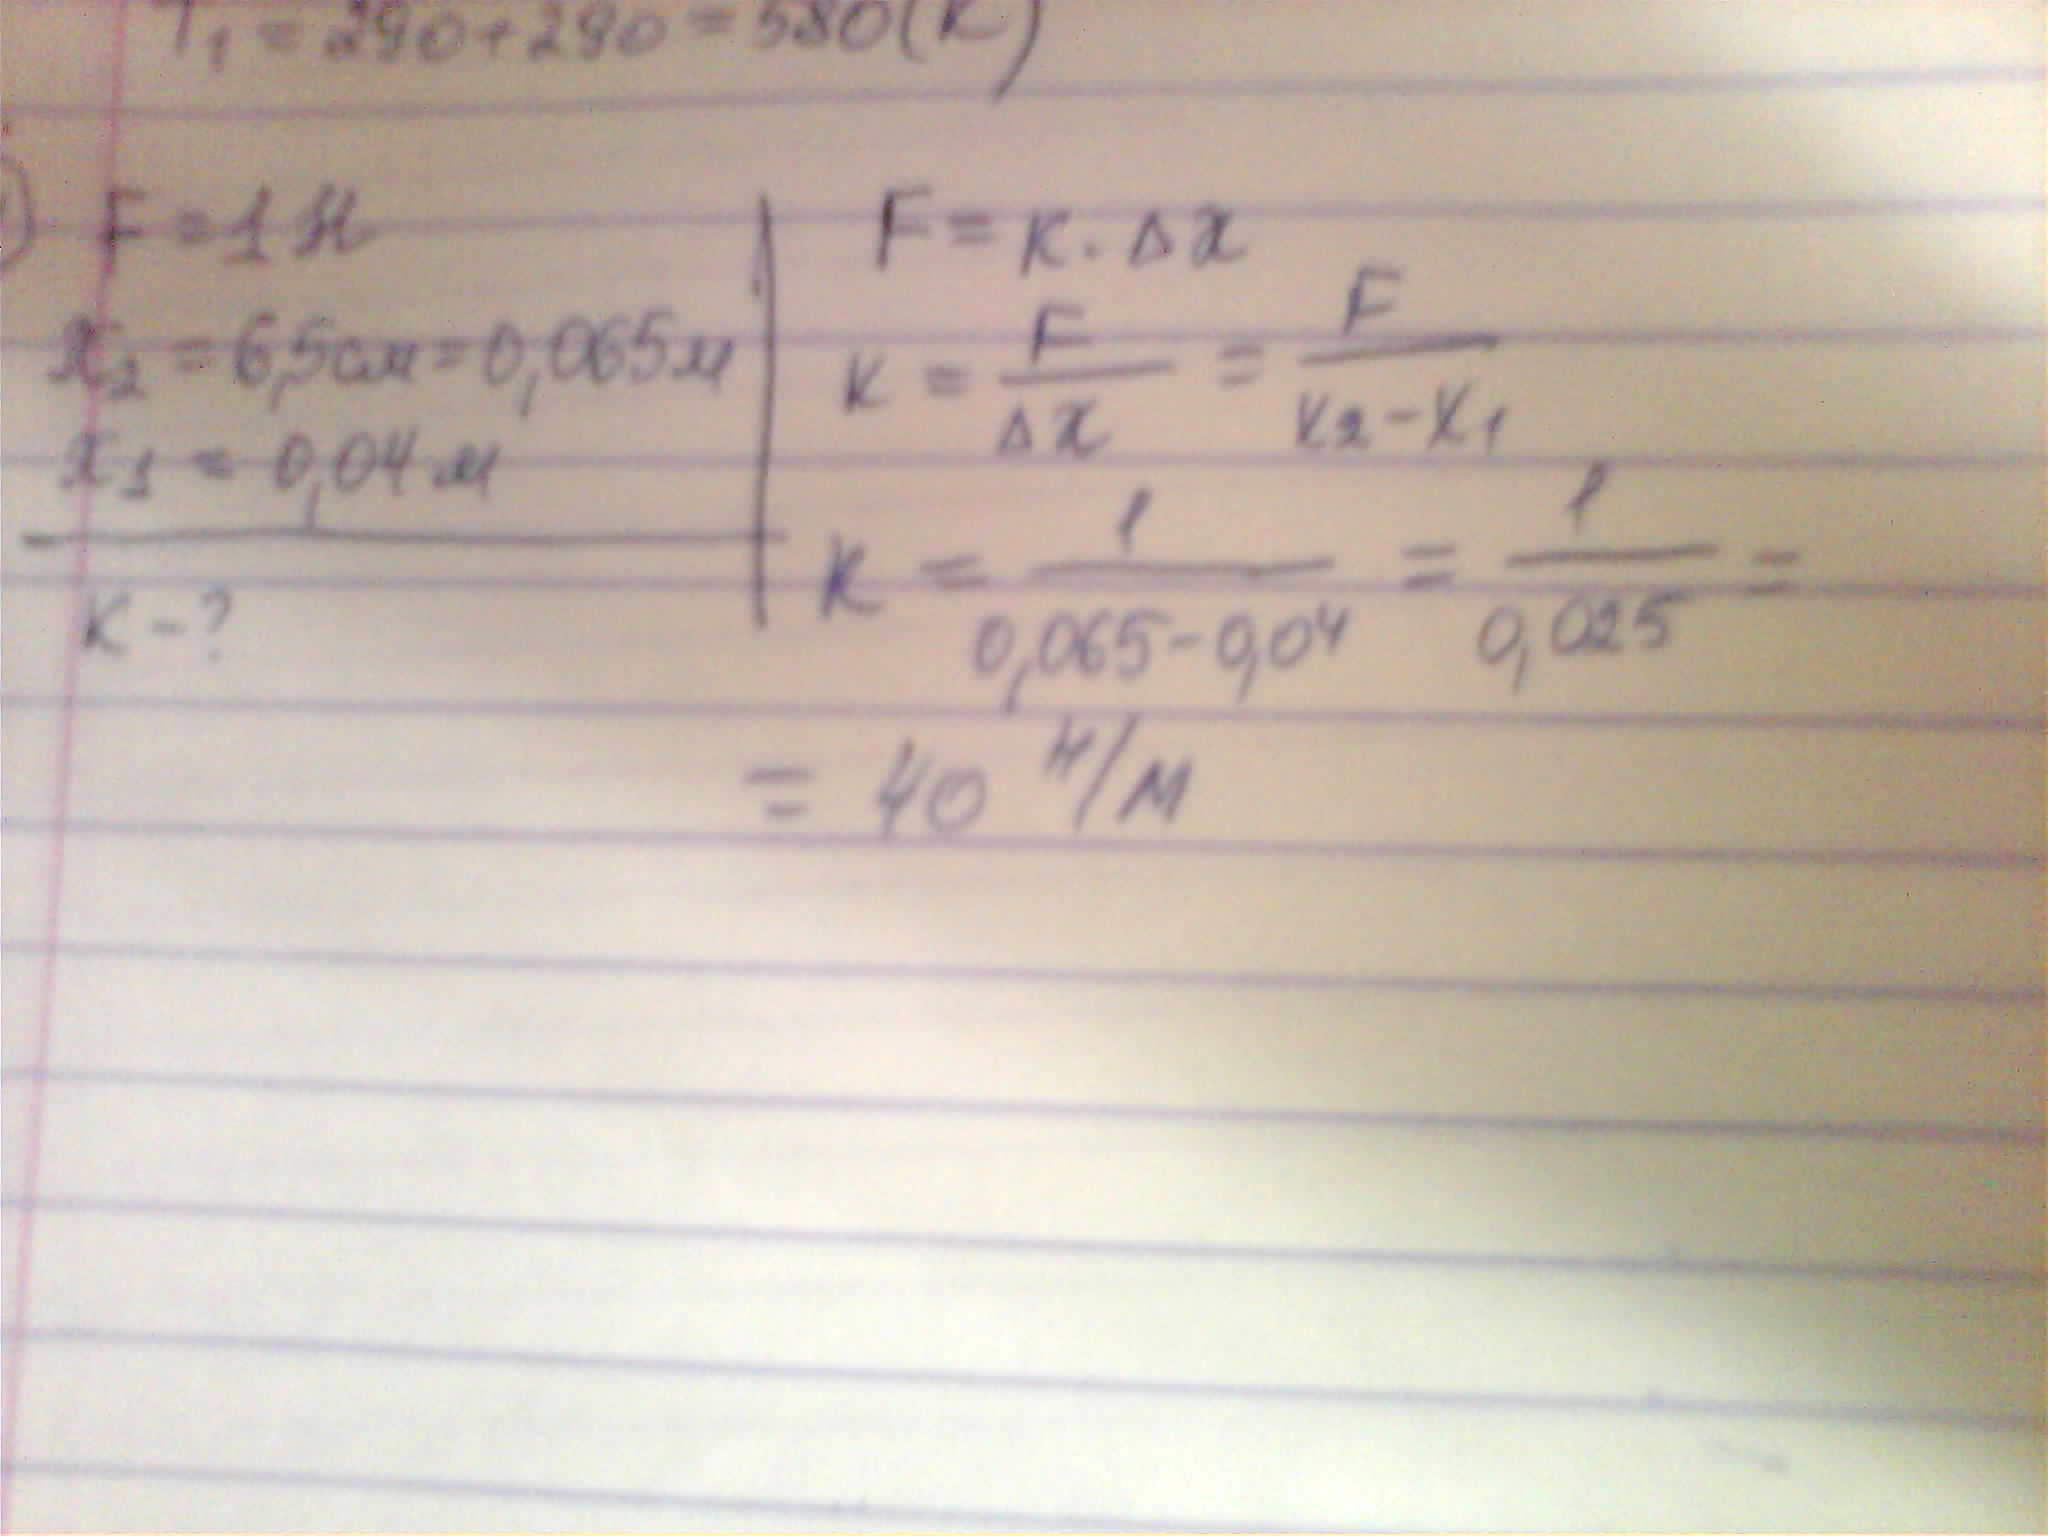 T₁ = 290 + 290 = 580 (К)
F = 1 Н
x₂ = 6,5 см = 0,065 м
x₁ = 0,04 м
К - ?
F = К · Δx
К = F/Δx = F/(x₂ - x₁)
К = 1/(0,065 - 0,04) = 1/0,025 =
= 40 Н/м